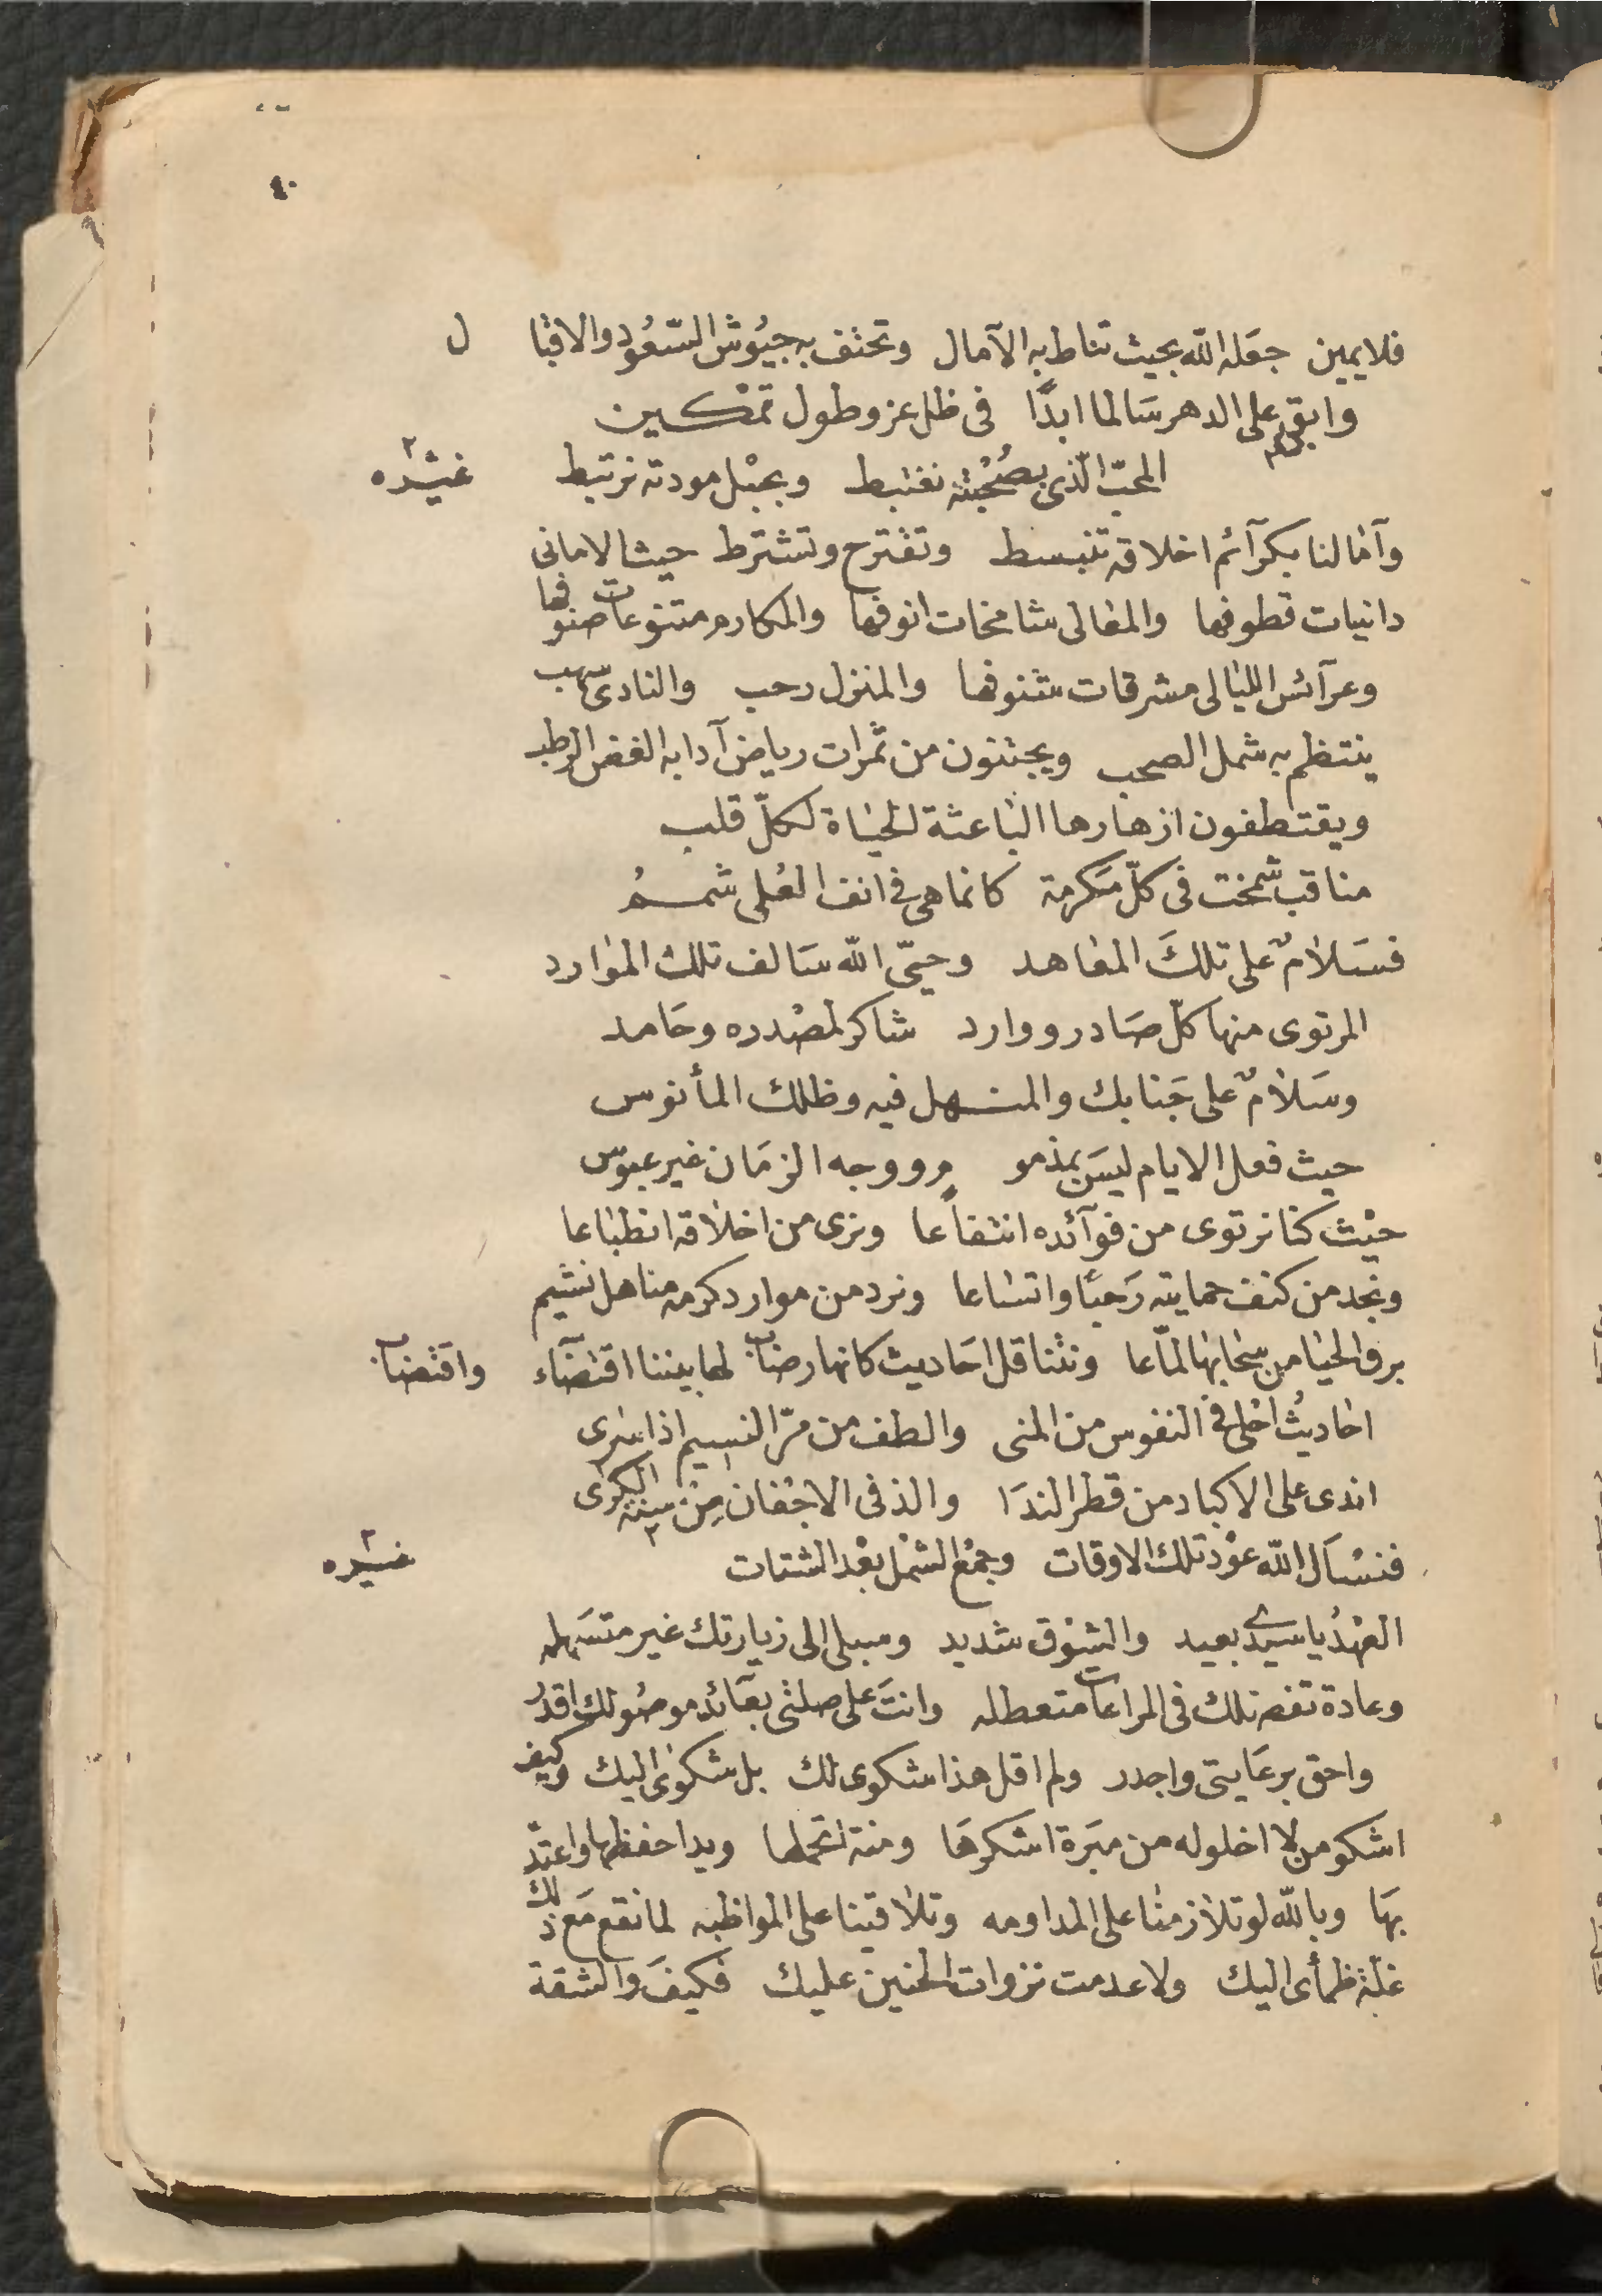 ٤٠
فلايمين جعَله الله بحيث تناط به الآمال وتحتف به جيُوش السّعُود والاقبا ل
وابقى على الدهر سَالما ابدًا فى ظل عز وطول تمْكين
المحبّ الّذى بصُحْبته نغتبط وبحبْل مودته نرتبط غيْره
وآمالنا بكرآئم اخلاقه تنبسط وتقترح وتشترط حيث الامانى
دانيات قطوفها والمعالى شامخات انوفها والمكارم متنوعات صنوفها
وعرآئس الليالى مشرقات شنوفها والمنزل رحب والنادى سهب
ينتظم به شمل الصحب ويجتنون من ثمرات رياض آدابه الغض الرطب
ويقتطفون ازهارها الباعثة الحياة لكلّ قلب
مناقب شمخت فى كلّ مَكرمة كانما هى فى انف العُلى شممُ
فسَلامٌ على تلكَ المعاهد وحيّى الله سَالف تلك الموارد
المرتوى منها كلّ صَادر ووارد شاكر لمصْدره وحَامد
وسَلامٌ على جَنابك والمنهل فيه وظلك المأنوس
حيث فعل الايام ليسَ بمذمو مٍ ووجه الزمَان غير عبوس
حيْث كنا نرتوى من فوآئده انتفاعا ونرى من اخلاقه انطباعا
ونجد من كنف حمايته رَحبًا واتساعا ونرد من موارد كرمه مناهل نشيم
برق الحيا من سحابها لمّاعا ونتناقل احَاديث كانها رضاب لها بيننا اقتضآء واقتضاب
احاديثُ احْلى فى النفوس من المنى والطف من مرّ النسيم اذا سَرى
اندى على الاكباد من قطر الندَا والذ فى الاجْفان مِنْ سِنة الكَرى
فنسْأل الله عوْد تلك الاوقات وجمْع الشمْل بعْد الشتات غيره
العَهْدُ يا سيدى بعيد والشوْق شديد وسبيلى الى زيارتك غير متسَهله
وعادة تفضلك فى المراعات متعطله وانتَ على صلتى بعَآئد موصُولك اقدر
واحق برعَايتى واجدر ولم اقل هذا شكوى لك بل شكوى اليك وكيف
اشكو من لا اخلو له من مبَرة اشكرهَا ومنة اتحملها ويد احفظها واعتدّ
بهَا وبالله لو تلازمنا على المداومه وتلاقينا على المواظبه لما نقع مَع ذلك
غلّة ظمأى اليك ولا عدمت نزوات الحنين عليك فكيفَ والشقة